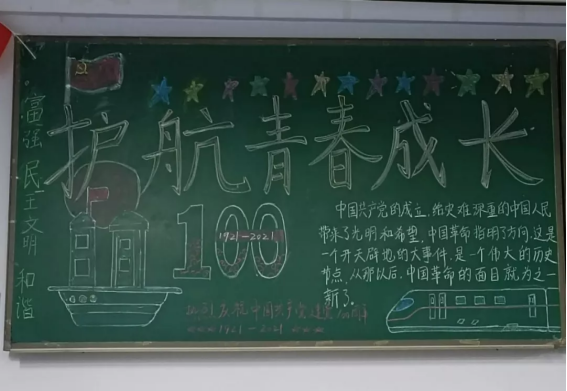 护航青春成长
富强 民主 文明 和谐
100
1921-2021
中国共产党的成立,给灾难深重的中国人民
带来了光明和希望,中国革命指明了方向.这是
一个开天辟地的大事件,是一个伟大的历史
节点,从那以后,中国革命的面目就为之一
新了.
庆祝中国共产党建党100周年
1921-2021